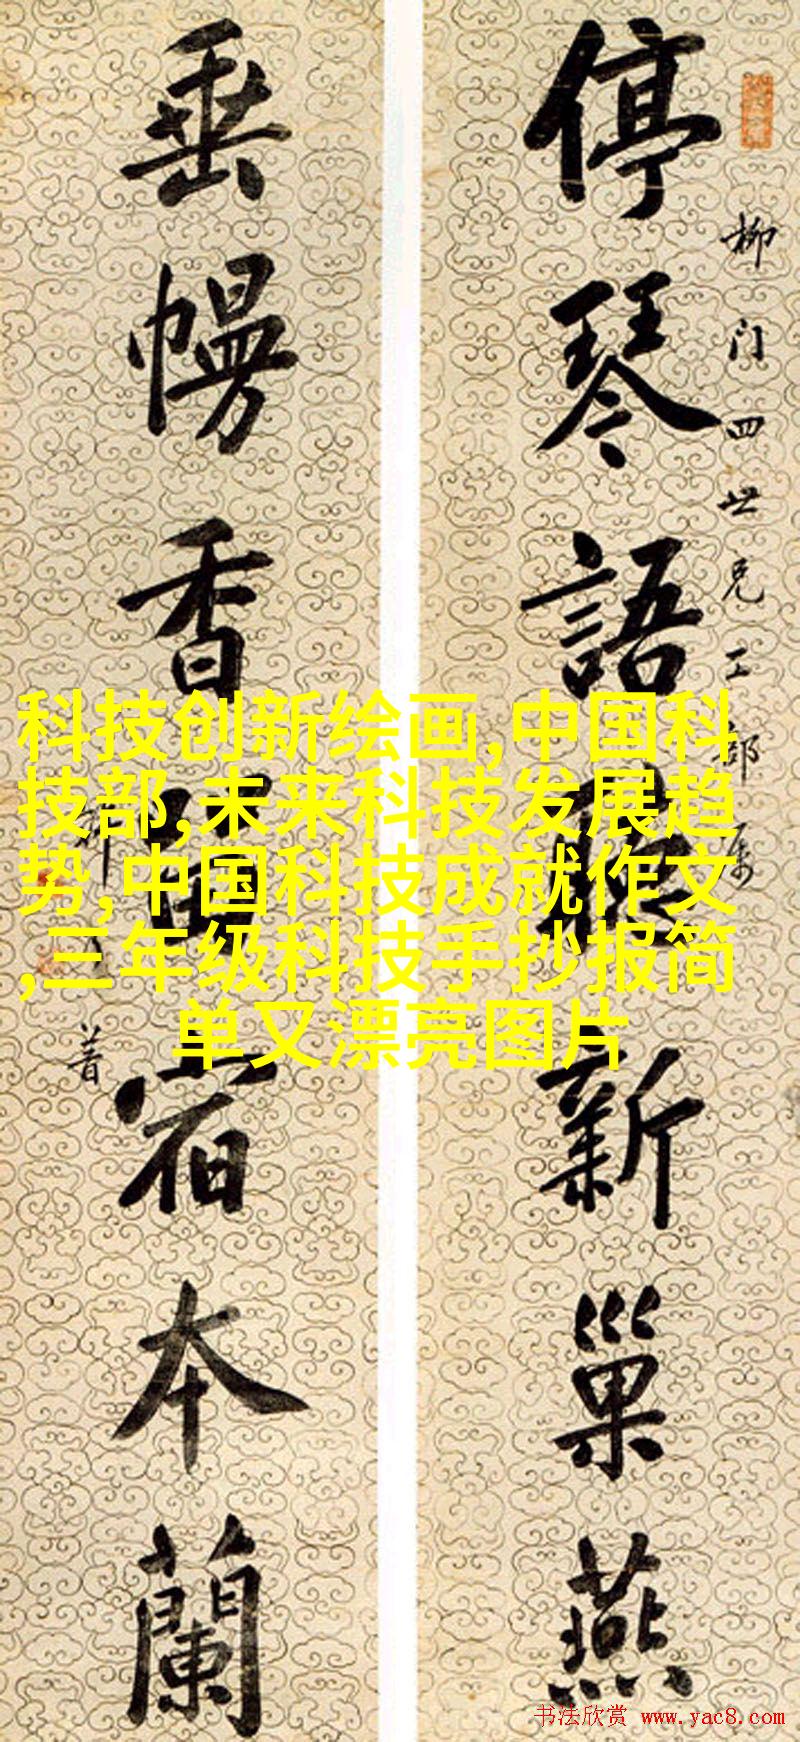 停琴語罷新巢燕
柳门四世兄工部属
垂幔香留宿本蘭
科技创新绘画,中国科
技部,未来科技发展趋
势,中国科技成就作文
,三年级科技手抄报简
单又漂亮图片
书法欣赏 www.yac8.com